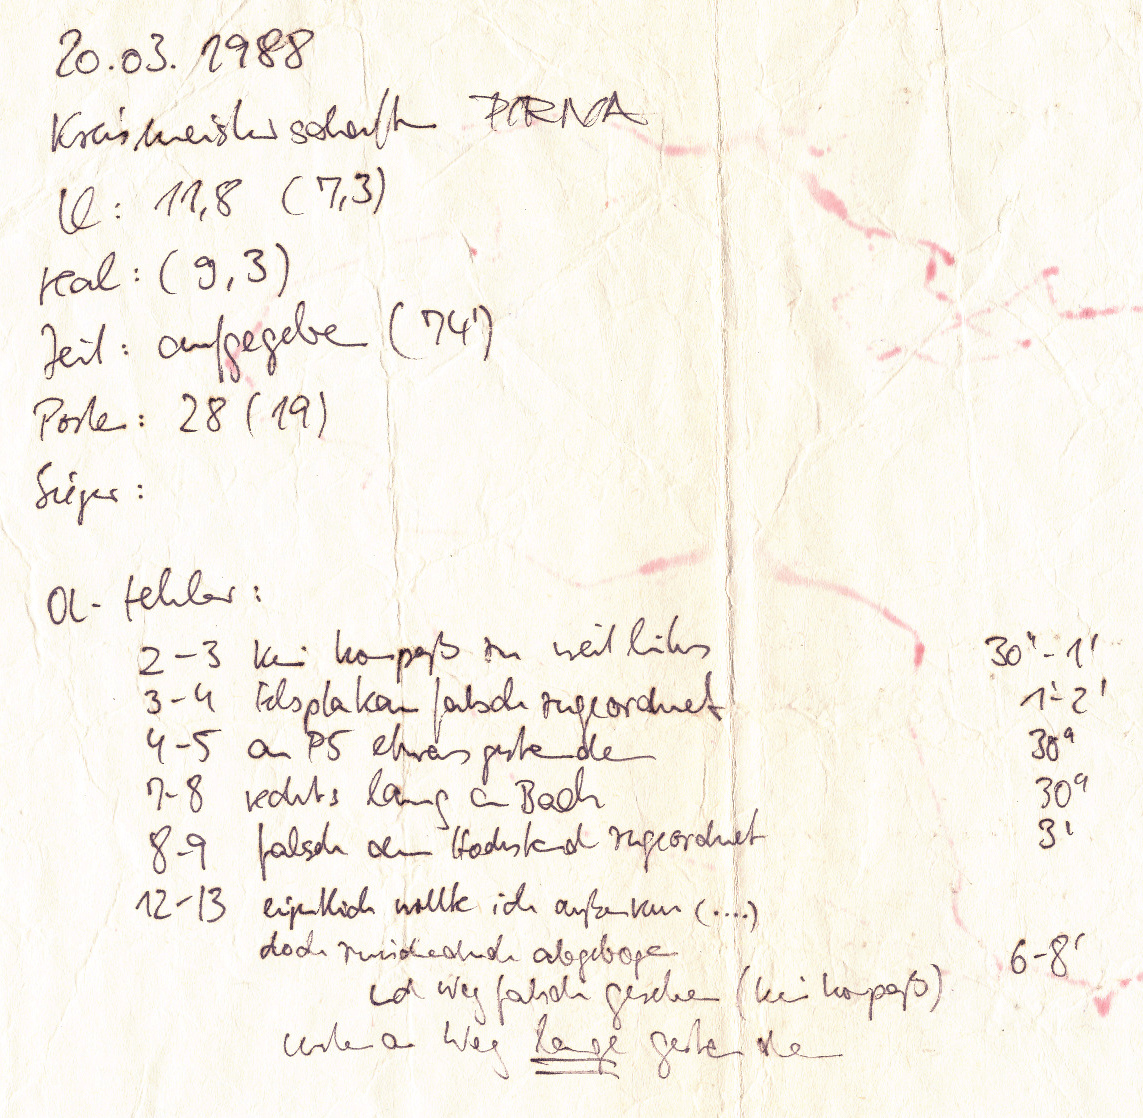 20.03.1988
Kreismeisterschaften PIRNA
11,8 (7,3)
real: (9,3)
Zeit: aufgegeben (74')
Posten: 28 (19)
Sieger:
OL-Fehler:
2-3 kein Kompaß zu weit links 30"-1'
3-4 Felsplakau falsch zugeordnet 1'-2'
4-5 an P5 etwas gestanden 30"
7-8 rechts lang am Bach 30"
8-9 falsch dem Hochstand zugeordnet 3'
12-13 eigentlich wollte ich außenrum (....)
doch abgebogen 6-8'
und Weg falsch gesehen (kein Kompaß)
unten am Weg lange gestanden